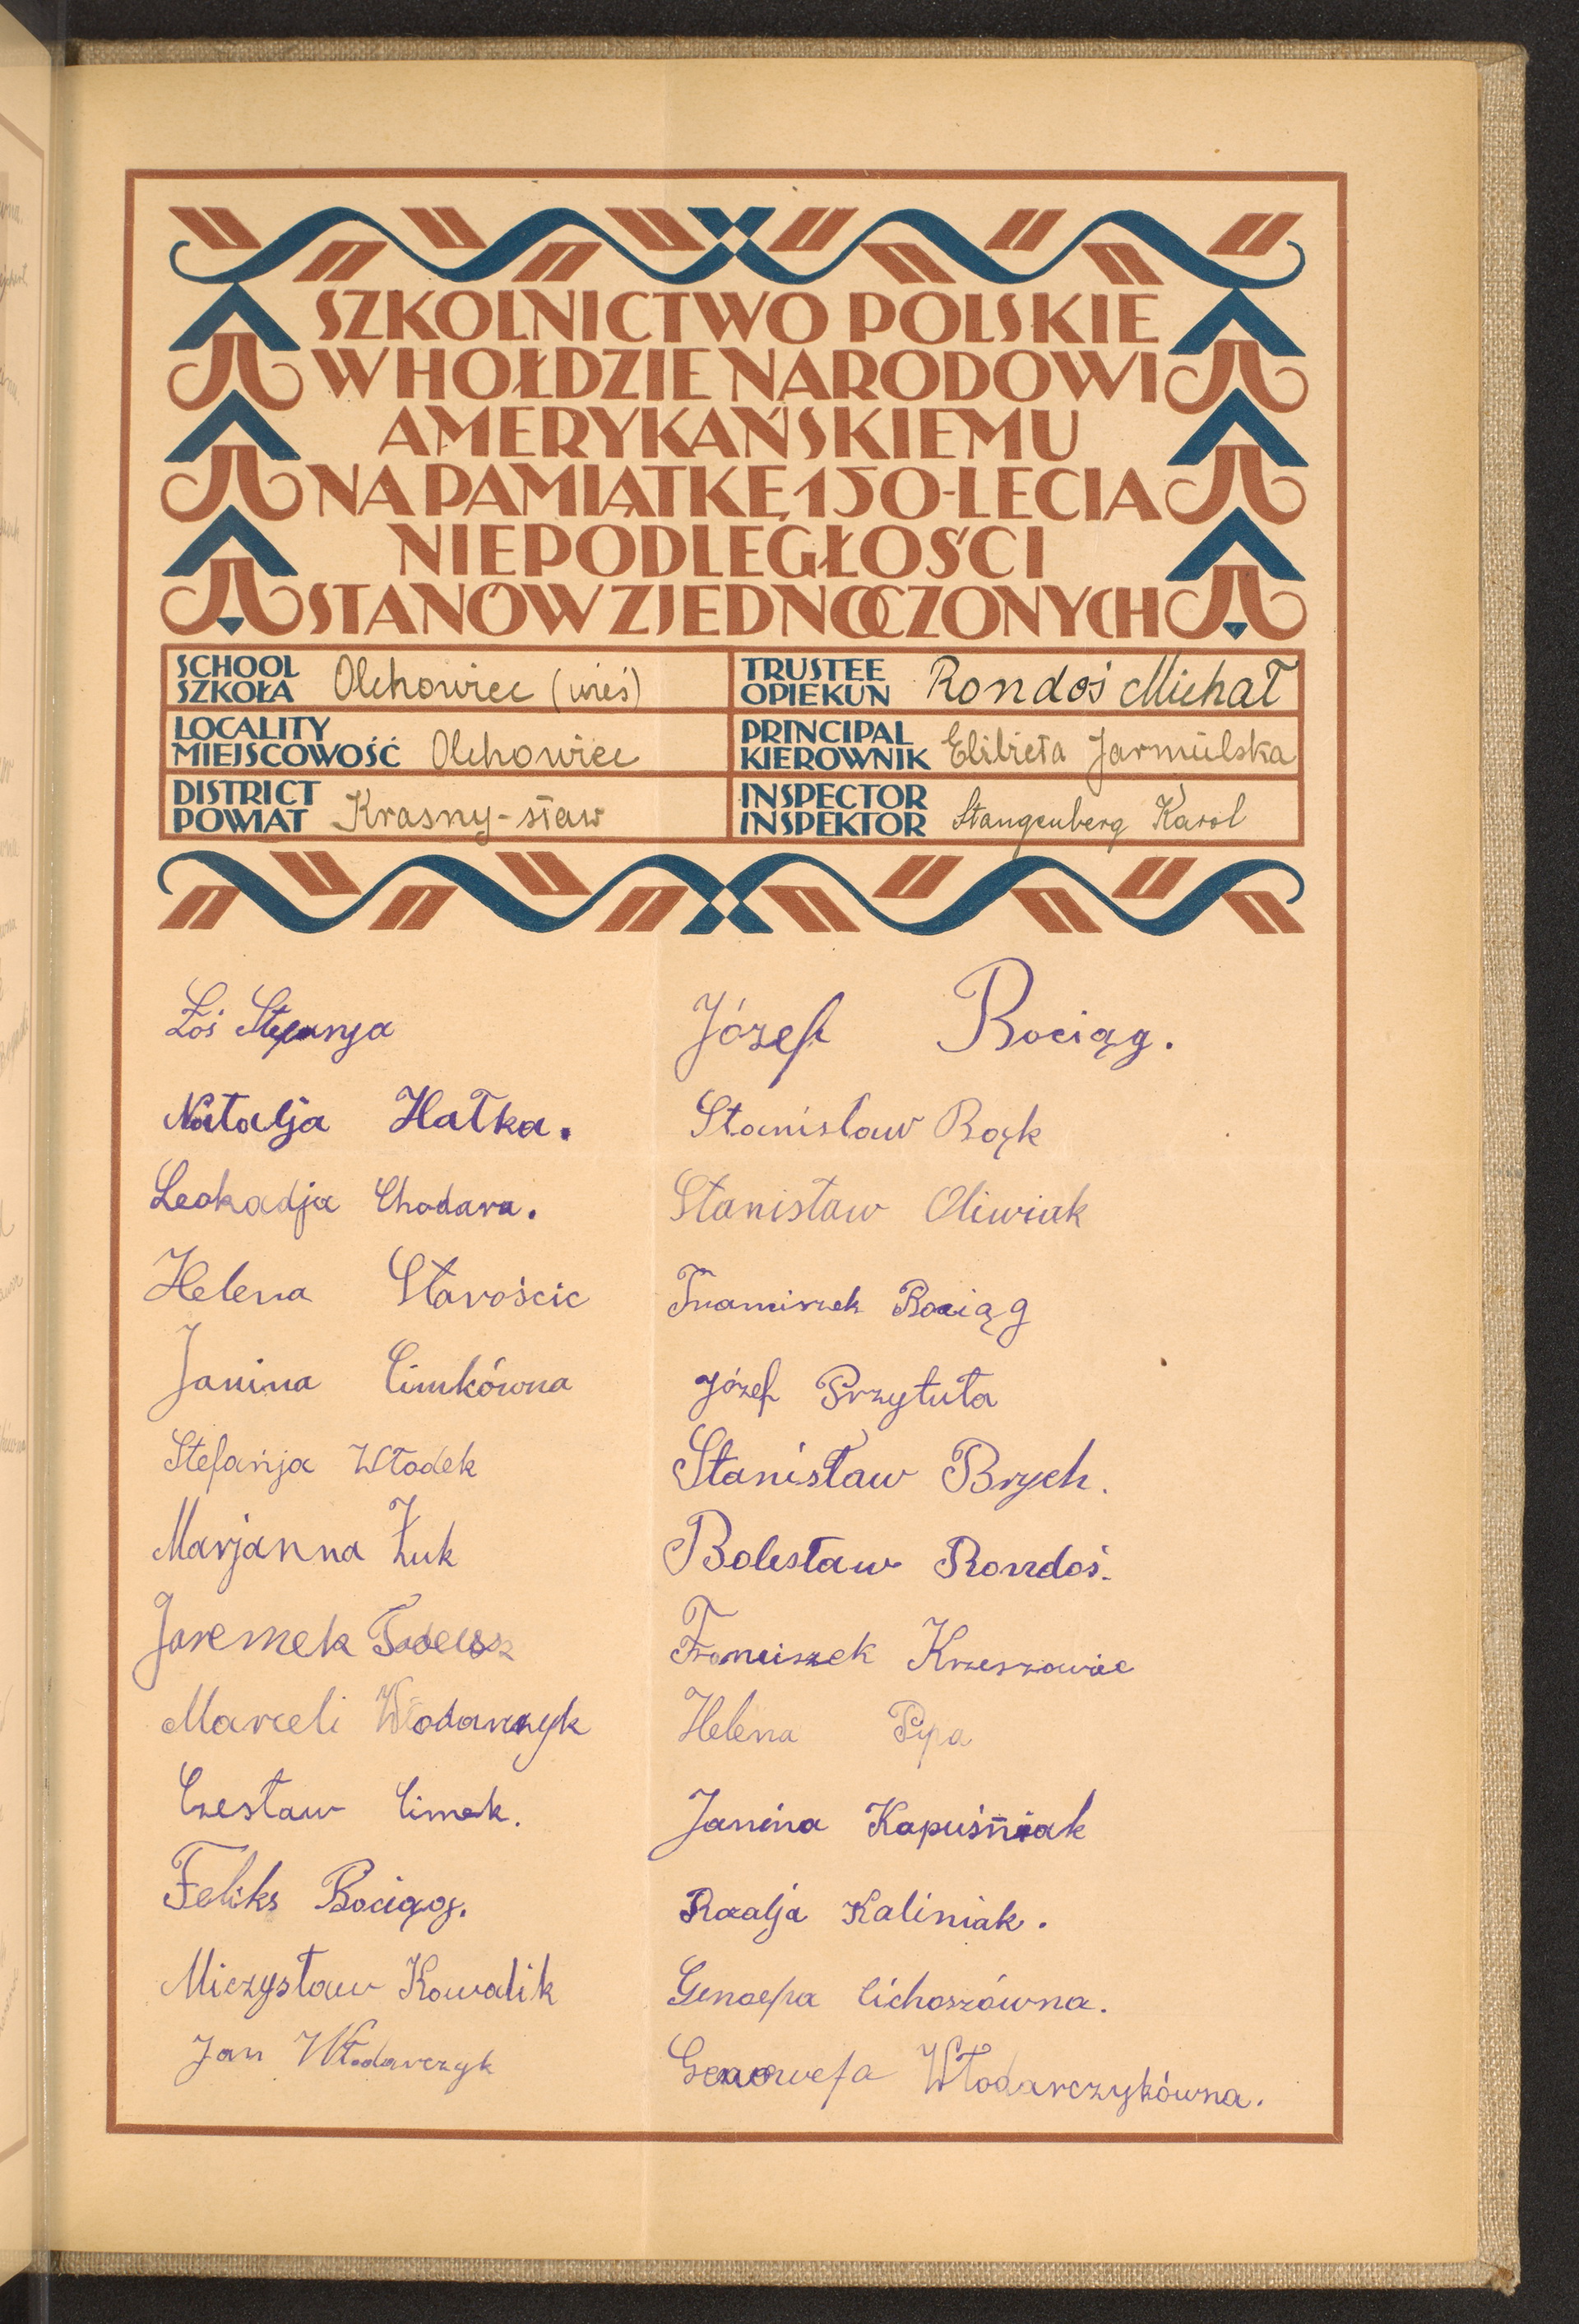 SZKOLNICTWO POLSKIE
W HOŁDZIE NARODOWI
AMERYKAŃSKIEMU
NA PAMIĄTKĘ 150-LECIA
NIEPODLEGŁOŚCI
STANÓW ZJEDNOCZONYCH
SCHOOL
SZKOŁA Olchowiec (wieś)
TRUSTEE
OPIEKUN Rondoś Michał
LOCALITY
MIEJSCOWOŚĆ Olchowiec
PRINCIPAL
KIEROWNIK Elżbieta Jarmulska
DISTRICT
POWIAT Krasny-staw
INSPECTOR
INSPEKTOR Stangenberg Karol
Łoś Stefanja
Natalja Hałka.
Leokadja Chodara.
Helena Starościc
Janina Cimkówna
Stefanja Włodek
Marjanna Żuk
Jaremek Tadeusz
Marceli Włodarczyk
Czesław Cimek.
Feliks Bociąg.
Mieczysław Kowalik
Jan Włodarczyk
Józef Bociąg.
Stanisław Bąk
Stanisław Oliwiak
Franciszek Bociąg
Józef Przytuła
Stanisław Brych.
Bolesław Rondoś.
Franciszek Krzeszowiec
Helena Pypa
Janina Kapuśniak
Rozalja Kaliniak.
Genoefa Cichoszówna.
Genowefa Włodarczykówna.